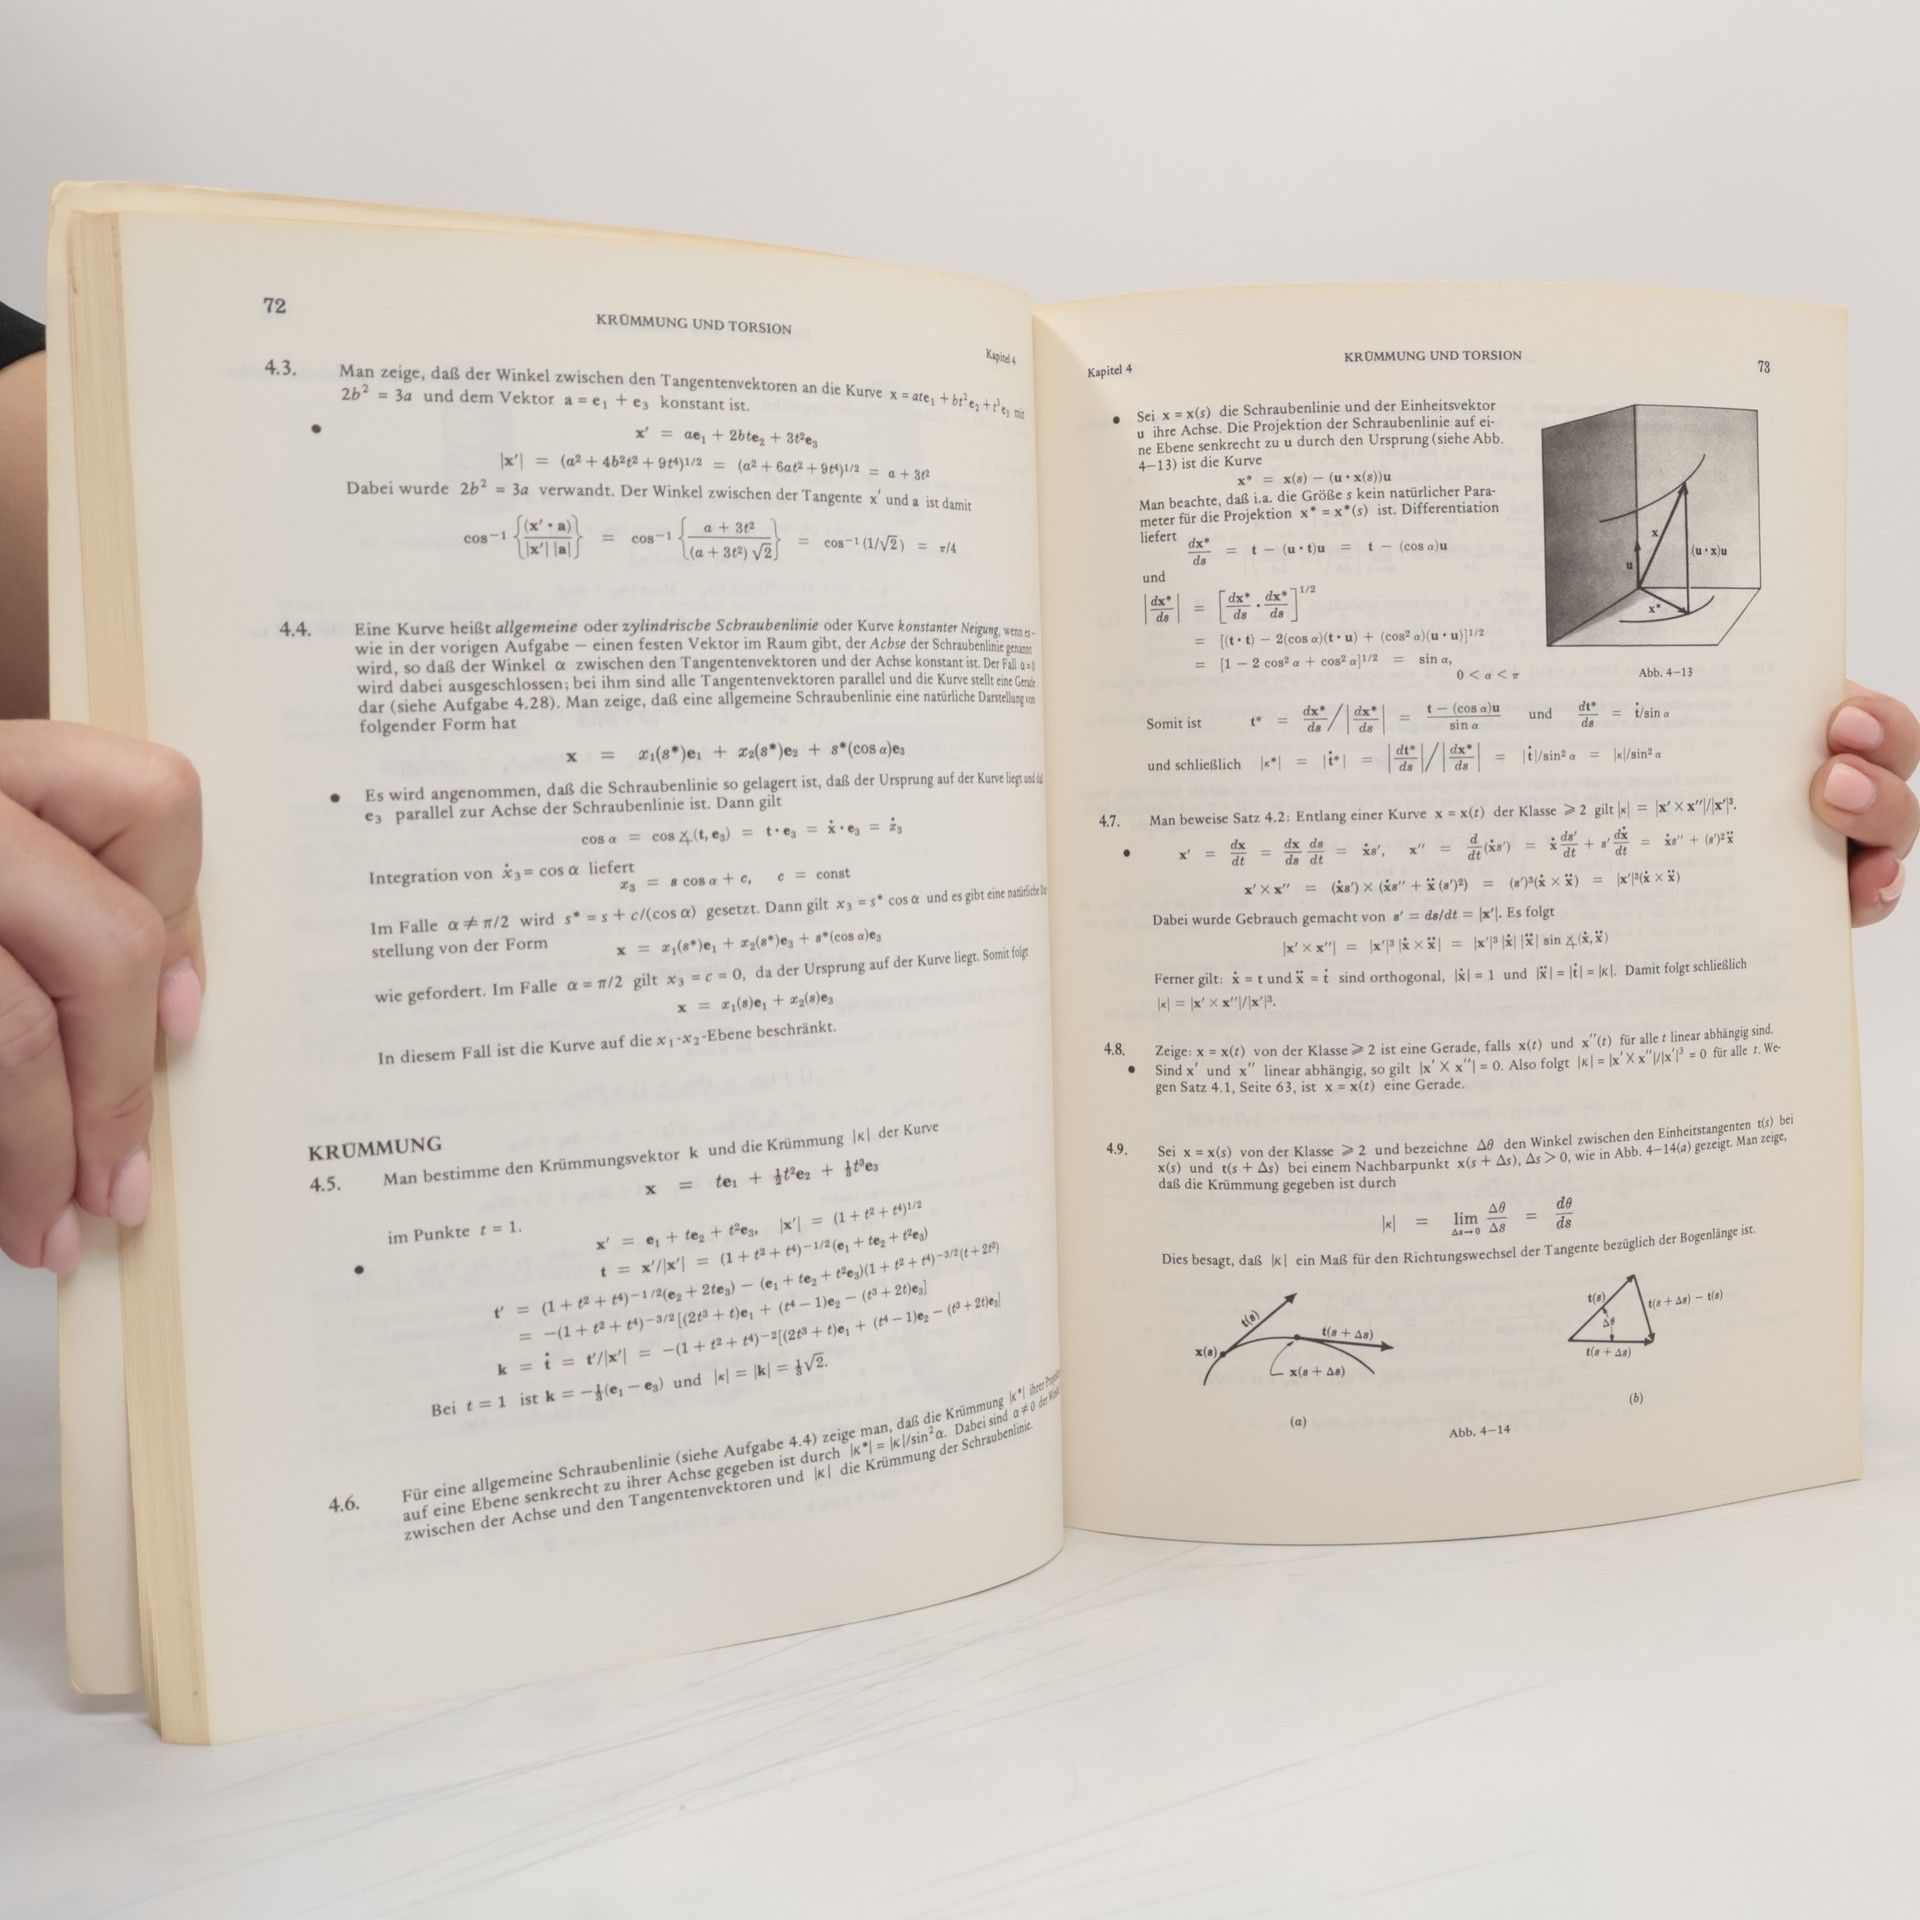 72
KRÜMMUNG UND TORSION
Kapitel 4
4.3. Man zeige, daß der Winkel zwischen den Tangentenvektoren an die Kurve x = ate₁ + bt²e₂ + t³e₃ mit
2b² = 3a und dem Vektor a = e₁ + e₃ konstant ist.
• x' = ae₁ + 2bte₂ + 3t²e₃
|x'| = (a² + 4b²t² + 9t⁴)^1/2 = (a² + 6at² + 9t⁴)^1/2 = a + 3t²
Dabei wurde 2b² = 3a verwandt. Der Winkel zwischen der Tangente x' und a ist damit
cos⁻¹ {(x' · a)/(|x'| |a|)} = cos⁻¹ {(a + 3t²)/((a + 3t²)√2)} = cos⁻¹ (1/√2) = π/4
4.4. Eine Kurve heißt allgemeine oder zylindrische Schraubenlinie oder Kurve konstanter Neigung, wenn es –
wie in der vorigen Aufgabe – einen festen Vektor im Raum gibt, der Achse der Schraubenlinie genannt
wird, so daß der Winkel α zwischen den Tangentenvektoren und der Achse konstant ist. Der Fall α = 0
wird dabei ausgeschlossen; bei ihm sind alle Tangentenvektoren parallel und die Kurve stellt eine Gerade
dar (siehe Aufgabe 4.28). Man zeige, daß eine allgemeine Schraubenlinie eine natürliche Darstellung von
folgender Form hat
x = x₁(s*)e₁ + x₂(s*)e₂ + s*(cos α)e₃
• Es wird angenommen, daß die Schraubenlinie so gelagert ist, daß der Ursprung auf der Kurve liegt und
e₃ parallel zur Achse der Schraubenlinie ist. Dann gilt
cos α = cos ∡(t, e₃) = t · e₃ = ẋ · e₃ = ẋ₃
Integration von ẋ₃ = cos α liefert
x₃ = s cos α + c, c = const
Im Falle α ≠ π/2 wird s* = s + c/(cos α) gesetzt. Dann gilt x₃ = s* cos α und es gibt eine natürliche
stellung von der Form
x = x₁(s*)e₁ + x₂(s*)e₂ + s*(cos α)e₃
wie gefordert. Im Falle α = π/2 gilt x₃ = c = 0, da der Ursprung auf der Kurve liegt. Somit folgt
x = x₁(s)e₁ + x₂(s)e₃
In diesem Fall ist die Kurve auf die x₁-x₂-Ebene beschränkt.
KRÜMMUNG
4.5. Man bestimme den Krümmungsvektor k und die Krümmung |κ| der Kurve
x = te₁ + ½t²e₂ + ⅓t³e₃
im Punkte t = 1.
• x' = e₁ + te₂ + t²e₃, |x'| = (1 + t² + t⁴)^1/2
t = x'/|x'| = (1 + t² + t⁴)^−1/2(e₁ + te₂ + t²e₃)
t' = (1 + t² + t⁴)^−1/2(e₂ + 2te₃) − (e₁ + te₂ + t²e₃)(1 + t² + t⁴)^−3/2(t + 2t³)
= −(1 + t² + t⁴)^−3/2[(2t³ + t)e₁ + (t⁴ − 1)e₂ − (t³ + 2t)e₃]
k = ṫ = t'/|x'| = −(1 + t² + t⁴)⁻²[(2t³ + t)e₁ + (t⁴ − 1)e₂ − (t³ + 2t)e₃]
Bei t = 1 ist k = −⅓(e₁ − e₃) und |κ| = |k| = ⅓√2.
4.6. Für eine allgemeine Schraubenlinie (siehe Aufgabe 4.4) zeige man, daß die Krümmung |κ*| ihrer
auf eine Ebene senkrecht zu ihrer Achse gegeben ist durch |κ*| = |κ|/sin²α. Dabei sind α ≠ 0 der
zwischen der Achse und den Tangentenvektoren und |κ| die Krümmung der Schraubenlinie.
Kapitel 4
KRÜMMUNG UND TORSION
73
• Sei x = x(s) die Schraubenlinie und der Einheitsvektor
u ihre Achse. Die Projektion der Schraubenlinie auf ei-
ne Ebene senkrecht zu u durch den Ursprung (siehe Abb.
4–13) ist die Kurve
x* = x(s) − (u · x(s))u
Man beachte, daß i.a. die Größe s kein natürlicher Para-
meter für die Projektion x* = x*(s) ist. Differentiation
liefert
dx*/ds = t − (u · t)u = t − (cos α)u
und
|dx*/ds| = [dx*/ds · dx*/ds]^1/2
= [(t · t) − 2(cos α)(t · u) + (cos² α)(u · u)]^1/2
= [1 − 2 cos² α + cos² α]^1/2 = sin α,
0 < α < π
x
u
(u · x)u
x*
Abb. 4–13
Somit ist t* = dx*/ds / |dx*/ds| = (t − (cos α)u)/sin α und dt*/ds = ṫ/sin α
und schließlich |κ*| = |ṫ*| = |dt*/ds| / |dx*/ds| = |ṫ|/sin² α = |κ|/sin² α
4.7. Man beweise Satz 4.2: Entlang einer Kurve x = x(t) der Klasse ⩾ 2 gilt |κ| = |x' × x''|/|x'|³.
• x' = dx/dt = dx/ds ds/dt = ẋs', x'' = d/dt(ẋs') = ẋ ds'/dt + s' dẋ/dt = ẋs'' + (s')²ẍ
x' × x'' = (ẋs') × (ẋs'' + ẍ(s')²) = (s')³(ẋ × ẍ) = |x'|³(ẋ × ẍ)
Dabei wurde Gebrauch gemacht von s' = ds/dt = |x'|. Es folgt
|x' × x''| = |x'|³ |ẋ × ẍ| = |x'|³ |ẋ| |ẍ| sin ∡(ẋ, ẍ)
Ferner gilt: ẋ = t und ẍ = ṫ sind orthogonal, |ẋ| = 1 und |ẍ| = |ṫ| = |κ|. Damit folgt schließlich
|κ| = |x' × x''|/|x'|³.
4.8. Zeige: x = x(t) von der Klasse ⩾ 2 ist eine Gerade, falls x(t) und x''(t) für alle t linear abhängig sind.
• Sind x' und x'' linear abhängig, so gilt |x' × x''| = 0. Also folgt |κ| = |x' × x''|/|x'|³ = 0 für alle t. We-
gen Satz 4.1, Seite 63, ist x = x(t) eine Gerade.
4.9. Sei x = x(s) von der Klasse ⩾ 2 und bezeichne Δθ den Winkel zwischen den Einheitstangenten t(s) bei
x(s) und t(s + Δs) bei einem Nachbarpunkt x(s + Δs), Δs > 0, wie in Abb. 4–14(a) gezeigt. Man zeige,
daß die Krümmung gegeben ist durch
|κ| = lim Δs→0 Δθ/Δs = dθ/ds
Dies besagt, daß |κ| ein Maß für den Richtungswechsel der Tangente bezüglich der Bogenlänge ist.
t(s)
x(s)
t(s + Δs)
x(s + Δs)
(a)
t(s)
Δθ
t(s + Δs) − t(s)
t(s + Δs)
(b)
Abb. 4–14